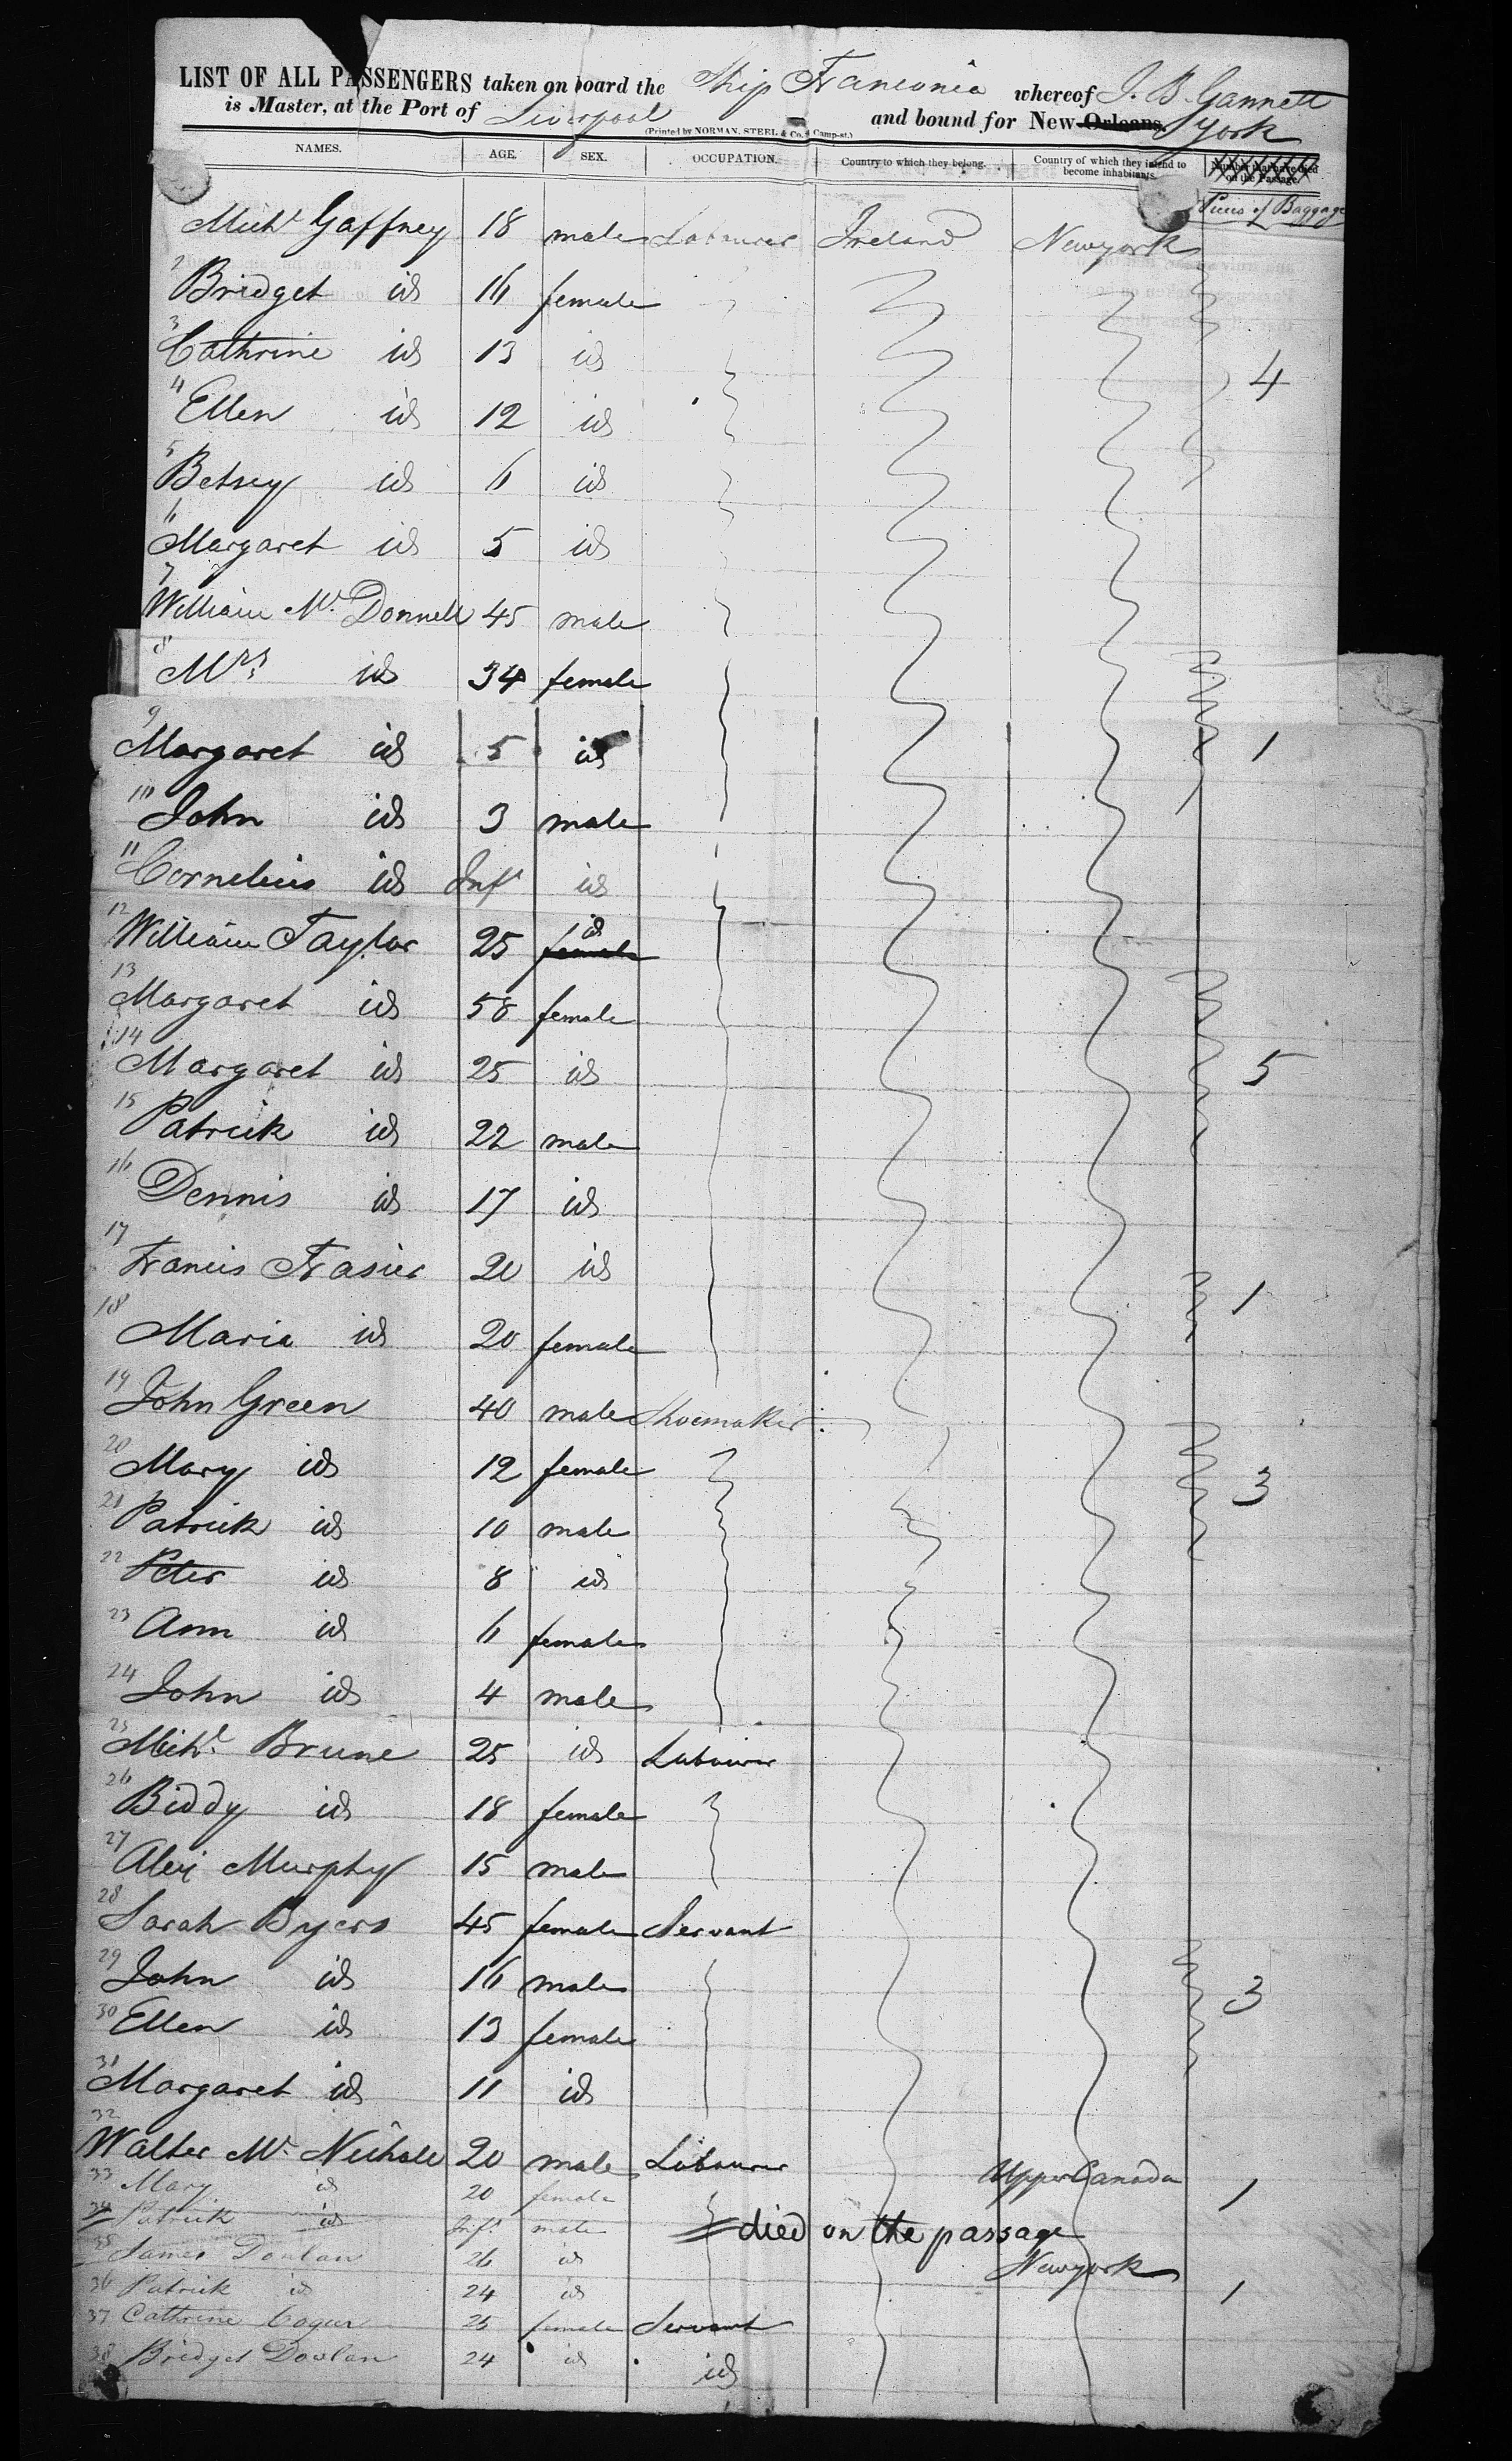 LIST OF ALL PASSENGERS taken on board the Ship Franconia whereof J. B. Gannett
is Master, at the Port of Liverpool and bound for New Orleans York
(Printed by NORMAN, STEEL & Co. Camp-st.)
NAMES. AGE. SEX. OCCUPATION. Country to which they belong. Country of which they intend to become inhabitants. Number that have died on the Passage.
Pieces of Baggage
Michl Gaffney 18 male Labourer Ireland Newyork
2 Bridget id 16 female
3 Cathrine id 13 id
4 Ellen id 12 id 4
5 Betsey id 6 id
6 Margaret id 5 id
7 William Mc Donnell 45 male
8 Mrs id 34 female
9 Margaret id 5 id 1
10 John id 3 male
11 Cornelius id Inft id
12 William Taylor 25 female id
13 Margaret id 58 female
14 Margaret id 25 id 5
15 Patrick id 22 male
16 Dennis id 17 id
17 Francis Frasier 20 id 1
18 Maria id 20 female
19 John Green 40 male Shoemaker
20 Mary id 12 female 3
21 Patrick id 10 male
22 Peter id 8 id
23 Ann id 6 female
24 John id 4 male
25 Michl. Brune 25 id Labourer
26 Biddy id 18 female
27 Alex Murphy 15 male
28 Sarah Byers 45 female Servant
29 John id 16 male 3
30 Ellen id 13 female
31 Margaret id 11 id
32 Walter Mc Nichole 20 male Labourer Upper Canada
33 Mary id 20 female 1
34 Patrick id Inft male died on the passage
35 James Doulan 26 id Newyork
36 Patrick id 24 id 1
37 Cathrine Cogur 25 female Servant
38 Bridget Doolan 24 id id